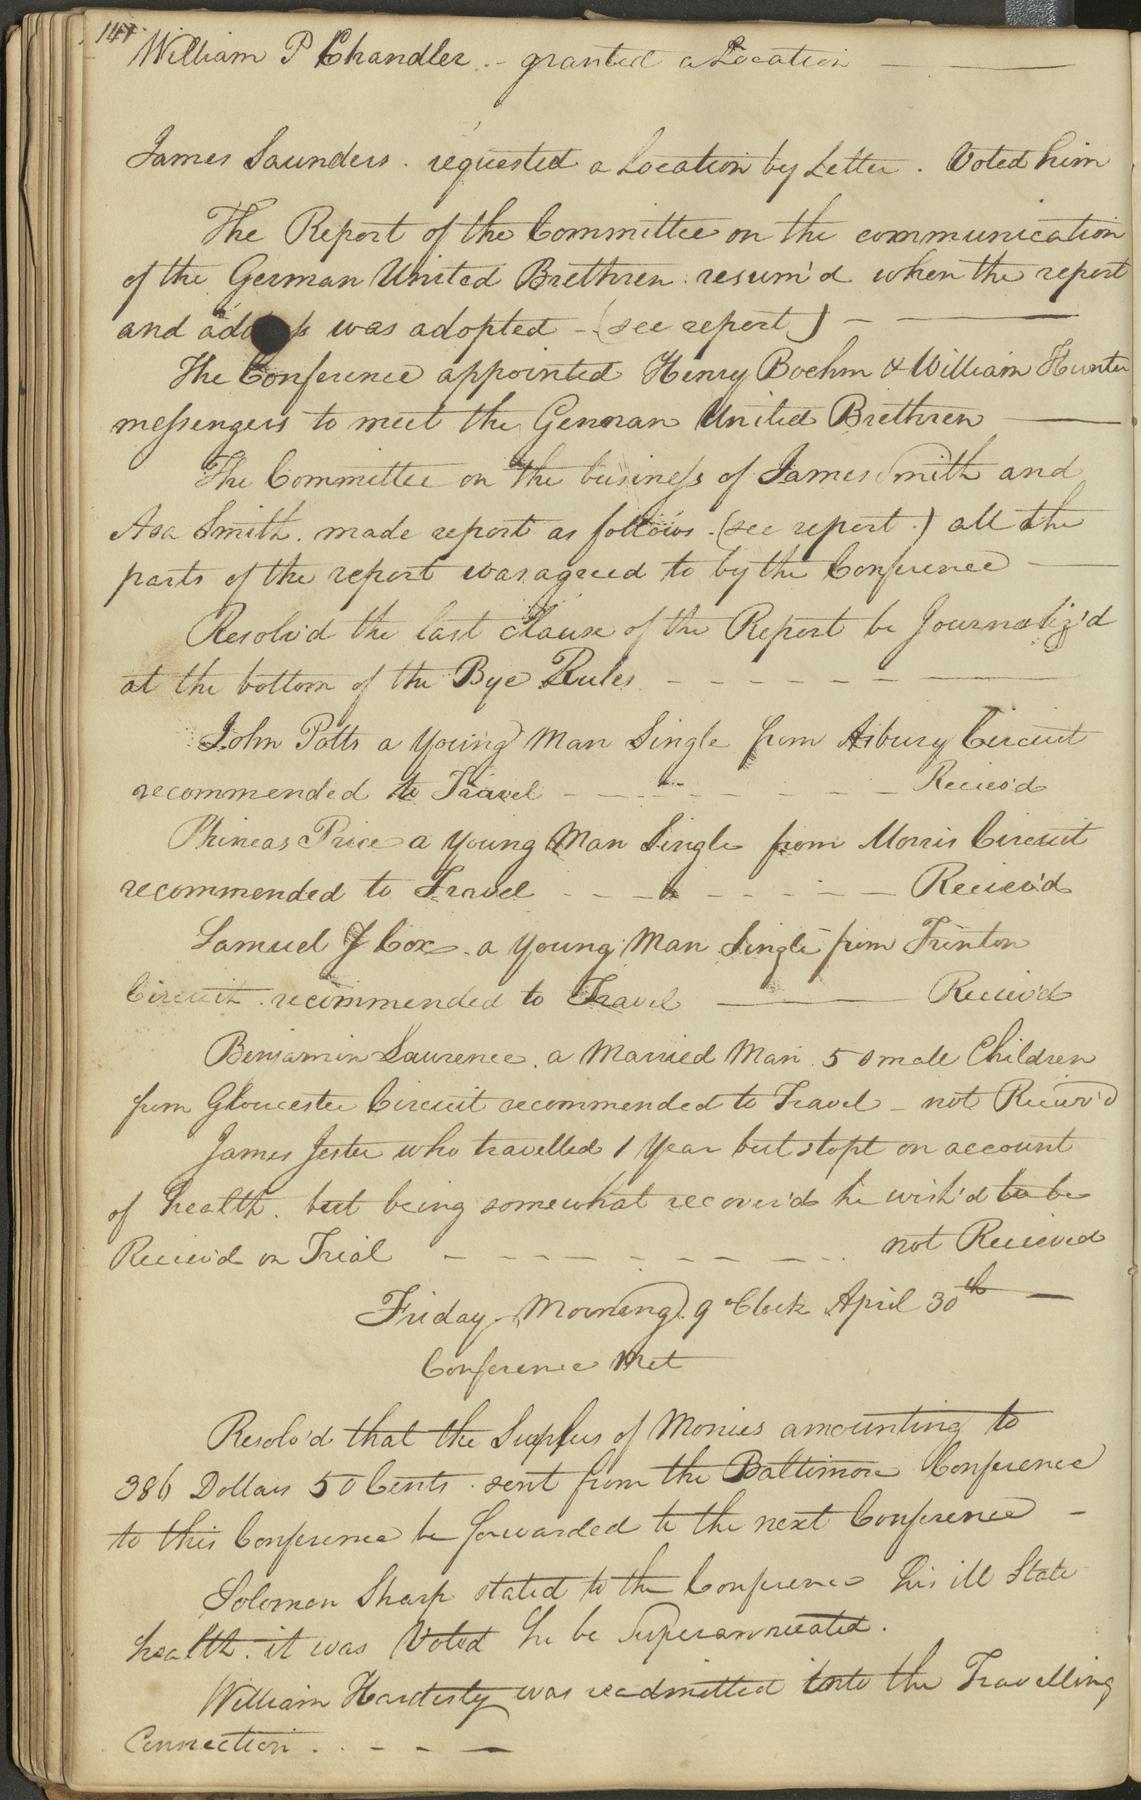 William P Chandler. - granted a Location
James Saunders. requested a Location by Letter. Voted him
The Report of the Committee on the communication
of the German United Brethren resum'd when the report
and was adopted - (see report) -
The Conference appointed Henry Boehm & William Hunter
messengers to meet the German United Brethren
The Committee on the business of James Smith and
Asa Smith. made report as follows. (see report.) all the
parts of the report was agreed to by the Conference -
Resolv'd the last Clause of the Report be Journaliz'd
at the bottom of the Bye Rules
John Potts a Young Man Single from Asbury Circuit
recommended to Travel Reciev'd
Phineas Price a Young Man Single from Morris Circuit
recommended to Travel Reciev'd
Samuel J Cox. a Young Man Single from Trinton
Circuit. recommended to Travel Reciev'd
Benjamin Laurence. a Married Man. 5 Small Children
from Gloucester Circuit recommended to Travel - not Reciev'd
James Jester who travelled 1 Year but stopt on account
of health. but being somewhat recover'd he wish'd to be
Reciev'd on Trial not Recieved
Friday Morning 9 oClock April 30th -
Conference Met
Resolv'd that the Surplus of Monies amounting to
386 Dollars 50 Cents. sent from the Baltimore Conference
to this Conference be forwarded to the next Conference -
Solomon Sharp stated to the Conference his ill State
health. it was Voted he be Superannuated.
William Hardesty was readmitted into the Travelling
Connection. . - - -